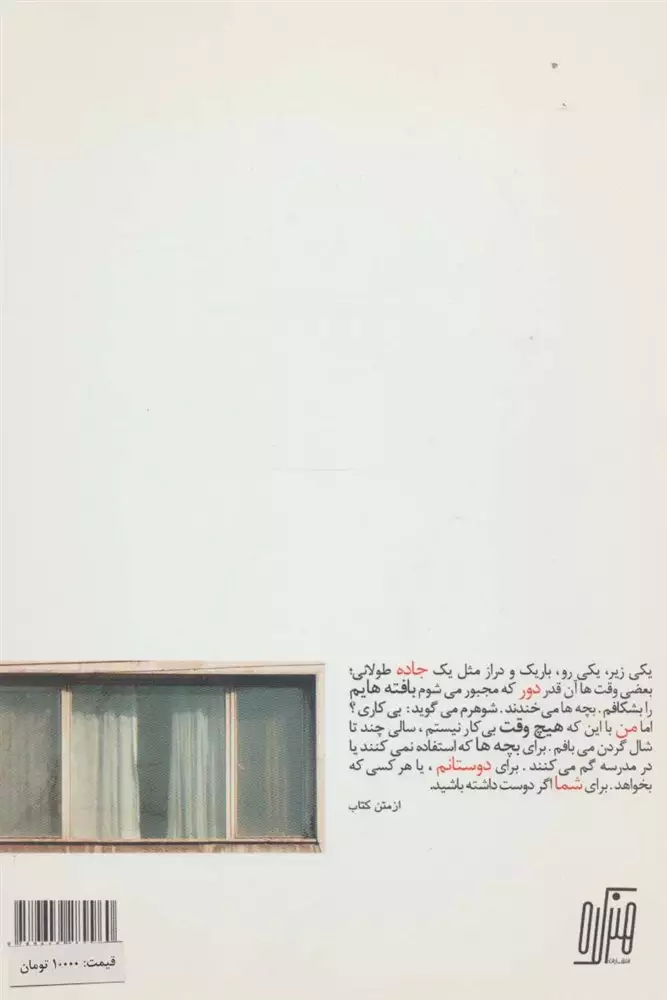 یکی زیر، یکی رو، باریک و دراز مثل یک جاده طولانی؛
بعضی وقت ها آن قدر دور که مجبور می شوم بافته هایم
را بشکافم. بچه ها می خندند. شوهرم می گوید: بی کاری؟
اما من با این که هیچ وقت بی کار نیستم، سالی چند تا
شال گردن می بافم. برای بچه ها که استفاده نمی کنند یا
در مدرسه گم می کنند. برای دوستانم، یا هر کسی که
بخواهد. برای شما اگر دوست داشته باشید.
از متن کتاب
انتشارات
قیمت: ۱۰۰۰۰ تومان